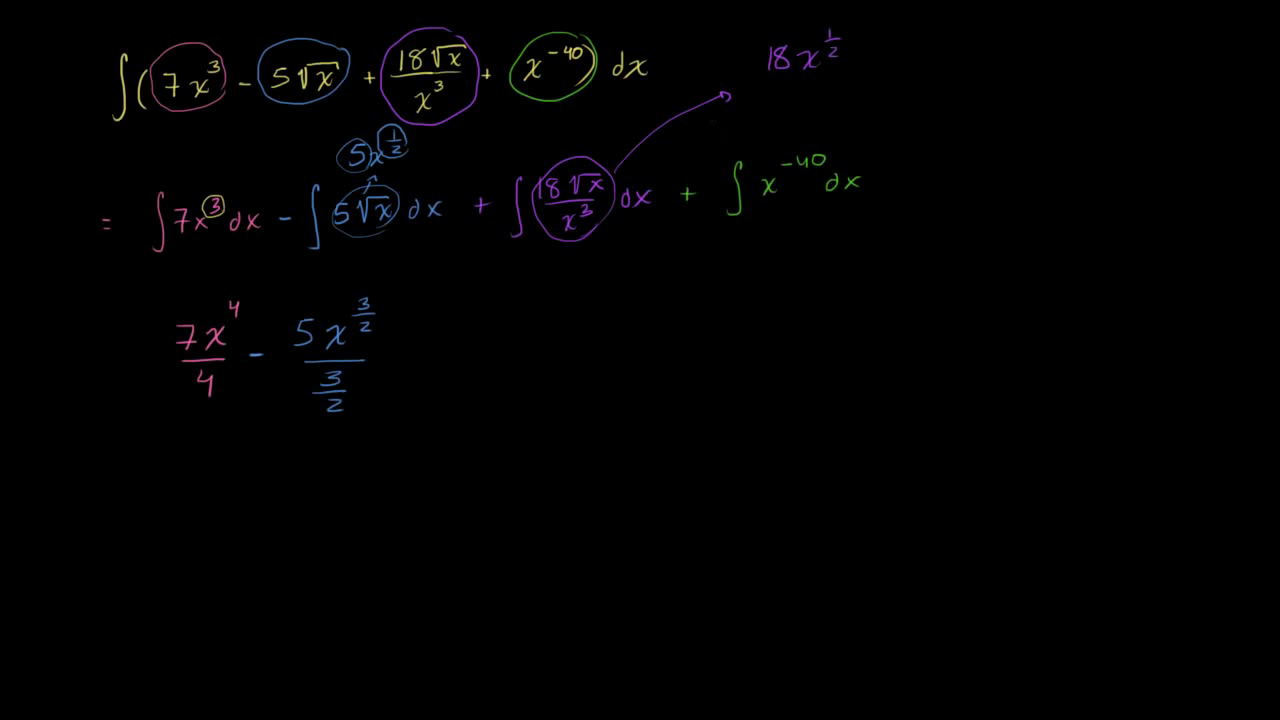 ∫(7x³ - 5√x + 18√x/x³ + x⁻⁴⁰) dx
18x^(1/2)
5x^(1/2)
= ∫7x³dx - ∫5√x dx + ∫18√x/x³ dx + ∫x⁻⁴⁰dx
7x⁴/4 - 5x^(3/2)/(3/2)